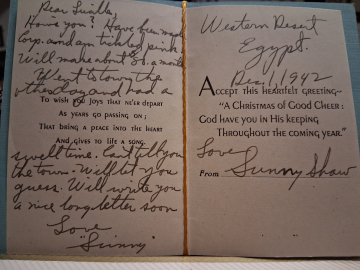 Dear Lucille
How're you? Have been made
Corp. and am tickled pink!
Will make about 80. a month
Went to town the
other day and had a
To wish you joys that ne'er depart
As years go passing on;
That bring a peace into the heart
And gives to life a song.
swell time. Can't tell you
the town. We'll let you
guess. Will write you
a nice long letter soon
Love
"Sunny"
Western Desert
Egypt.
Dec. 1, 1942
Accept this heartfelt greeting—
"A Christmas of Good Cheer:
God have you in His keeping
Throughout the coming year."
Love
From Sunny Shaw